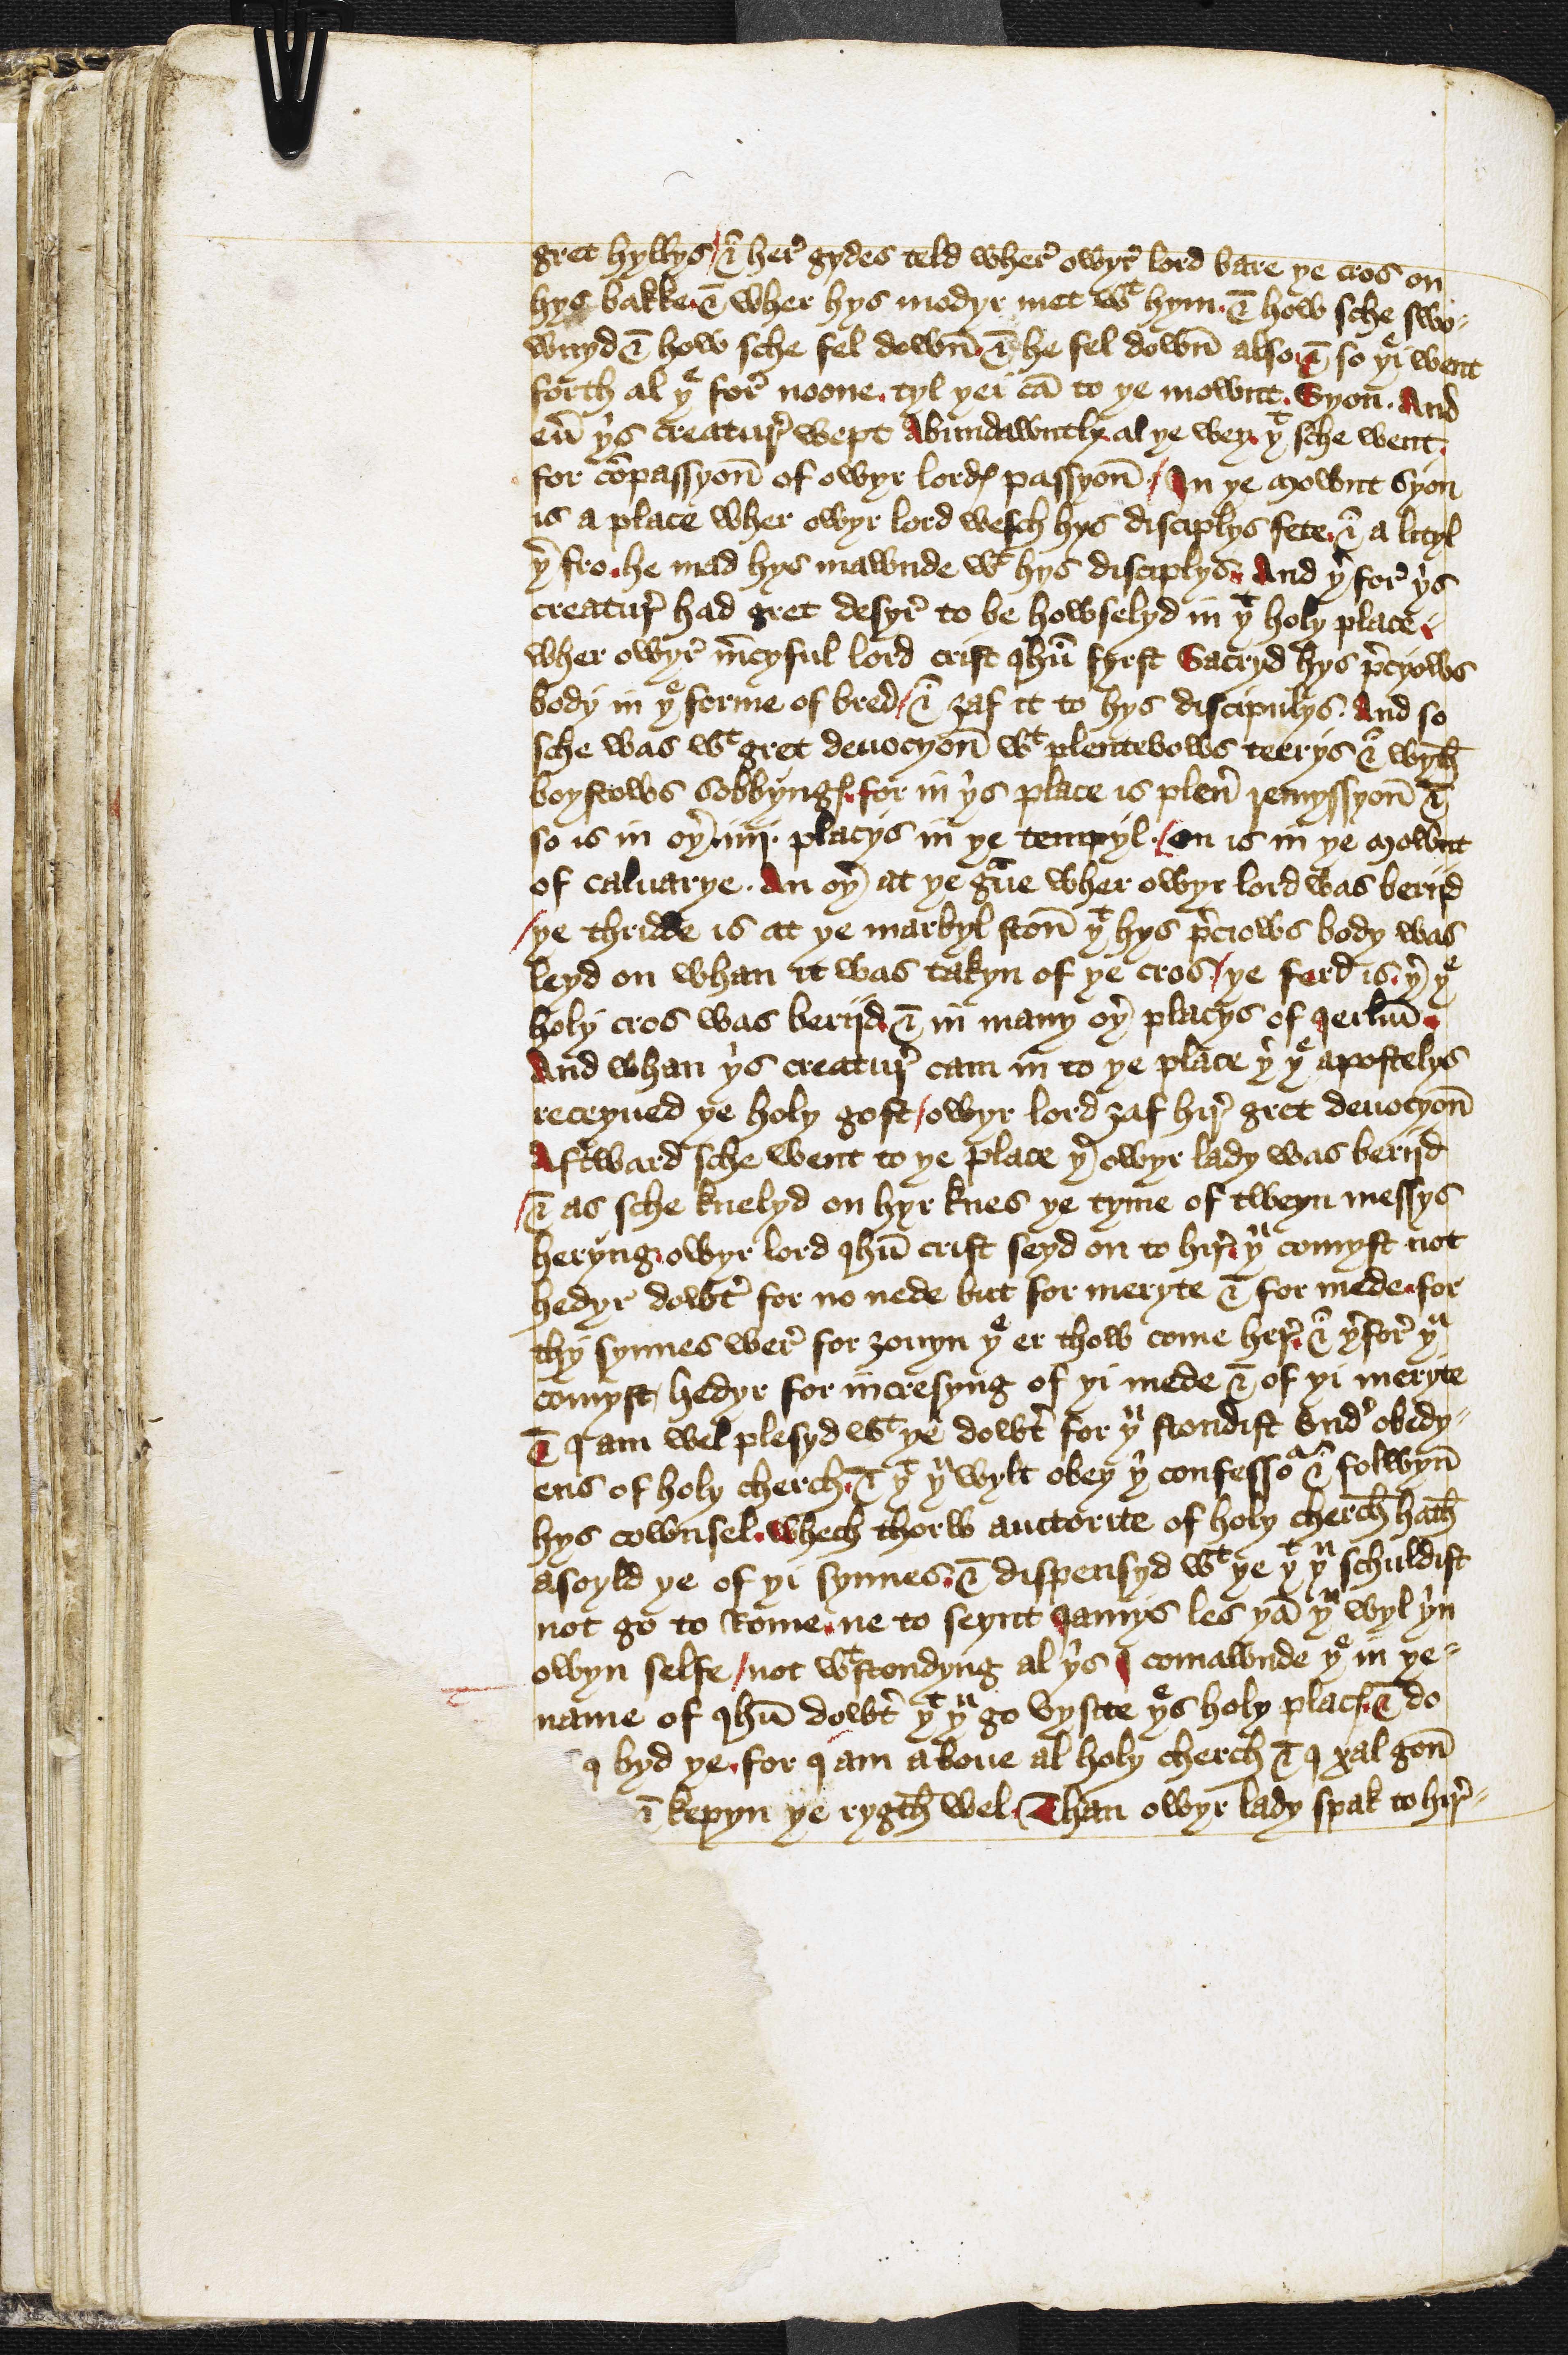 gret hyllys / & her̉ gydes teld wher̉ owyr̉ lord bare ye cros on
hys bakke . & wher hys modyr met wᵗ hym . & how sche swo⸗
wnyd & how sche fel down̄ . & he fel down̄ also . & so yᵉi went
forth al yᵉ for̉ noone . tyl yei cā to ye mownt . Syon . And
eū yis creatur̉ wept Abundawntly . al ye wey . yᵗ sche went .
for cōpassyon̄ of owyr lordꝭ passyon̄ . / In ye Mownt Syon
is a place wher owyr lord wesch hys disciplys fete . & a lityl
ỷ fro . he mad hys mawnde wᵗ hys disciplys . And ỷ for̉ yⁱs
creatur̉ had gret desyr̉ to be howselyd in yᵗ holy place /
wher owyr̉ m̄cyful lord crist Ihū fyrst Sacryd hys p̉cyows
body in yᵉ forme of bred / & ȝaf it to hys discipulys . And so
sche was wᵗ gret deuocyon̄ wᵗ plentevows teerys & wyth̄
boystows Sobbyngꝭ . for in yⁱs place is plen̉ remyssyon̄ &
so is in oỷ iiij . placys in ye tempyl . / On is in ye Mownt
of caluarye . An oỷ at ye gᵃue wher owyr lord was berijd
/ ye thridde is at ye marbyl ston̄ yᵗ hys p̉ciows body was
leyd on whan it was takyn of ye cros / ye ferd is . ỷ yᵉ
holy cros was berijd . & in many oỷ placys of Ierlm̄ .
And whan yⁱs creatur̉ cam in to ye place ỷ yᵉ apostelys
receyued ye holy gost / owyr lord ȝaf hir̉ gret deuocyon̄
Aft̉ward sche went to ye place ỷ owyr lady was berijd
/ & as sche knelyd on hyr knes ye tyme of tweyn messys
heryng . owyr lord Ihū crist seyd on to hir̉ . yᵘ comyst not
hedyr dowt̉ for no nede but for meryte & for mede . for
thy synnes wer̉ for ȝouyn yᵉ er thow come her̉ . & ỷfor̉ yᵘ
comyst hedyr for incresyng of yi mede & of yi meryte
& I am wel plesyd wᵗ ye dowt̉ for yᵘ stondist vnd̉ obedy⸗
ens of holy cherch . & yᵗ yᵘ wylt obey yⁱ confesso & folwyn̄
hys cownsel . whech thorw auctorite of holy cherch̄ hath̄
asoyld ye of yi synnes . & dispensyd wᵗ ye yᵗ yᵘ schuldist
not go to Rome . ne to seynt Iamys les yā yᵘ wyl yⁱn
owyn selfe / not wᵗstondyng al yⁱs I comawnde yᵉ in ye⸗
name of Ihū dowt̉ yᵗ yᵘ go vysite yᵉs holy placꝭ . & do
I byd ye . for I am a boue al holy cherch & I xal gon̄
& kepyn ye rygth̄ wel . / Than owyr lady spak to hir̉⸗